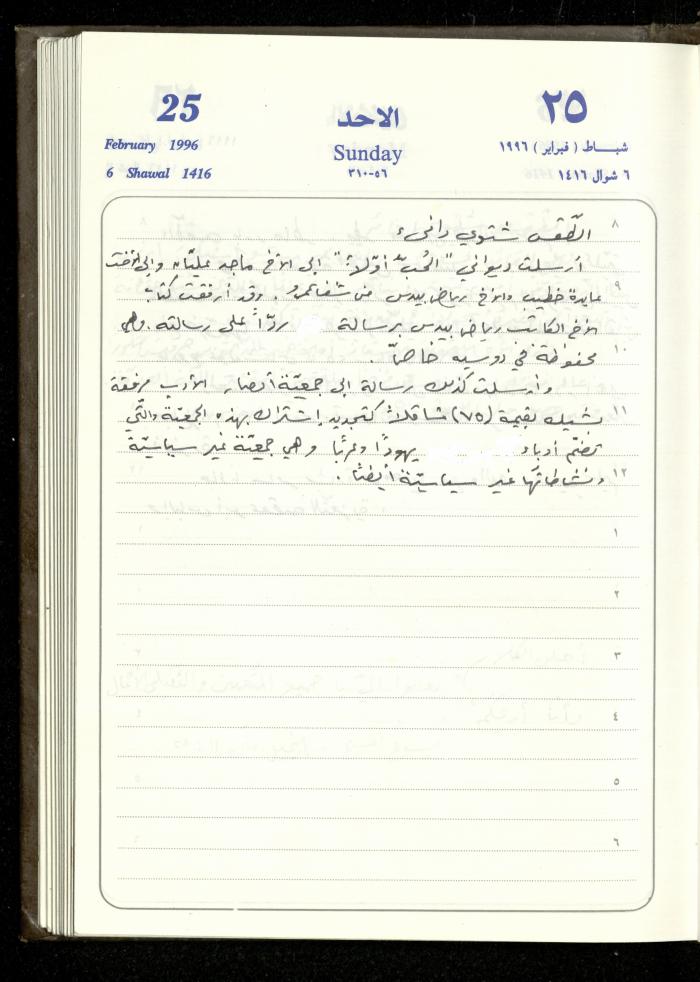 25 الاحد ٢٥
February 1996 Sunday شباط ( فبراير ) ١٩٩٦
6 Shawal 1416 ٥٦-٣١٠ ٦ شوال ١٤١٦
٨ الطّقس شتوي دافئ
أرسلت ديواني "الحُبّ أوّلاً" الى الأخ ماجد عليّان والى الأخت
٩ عايدة خطيب والأخ رياض بيدس من شفاعمرو. وقد أرفقت كتاب
الأخ الكاتب رياض بيدس برسالة ردّاً على رسالته. وهي
١٠ محفوظة في دوسيه خاصّ.
وأرسلت كذلك رسالة الى جمعيّة أنصار الأدب مرفقة
١١ بشيك بقيمة (٧٥) شاقلاً كتجديد إشتراك بهذه الجمعيّة والّتي
تضمّ أدباء يهوداً وعرباً وهي جمعيّة غير سياسيّة
١٢ ونشاطاتها غير سياسيّة أيضاً.
١
٢
٣
٤
٥
٦